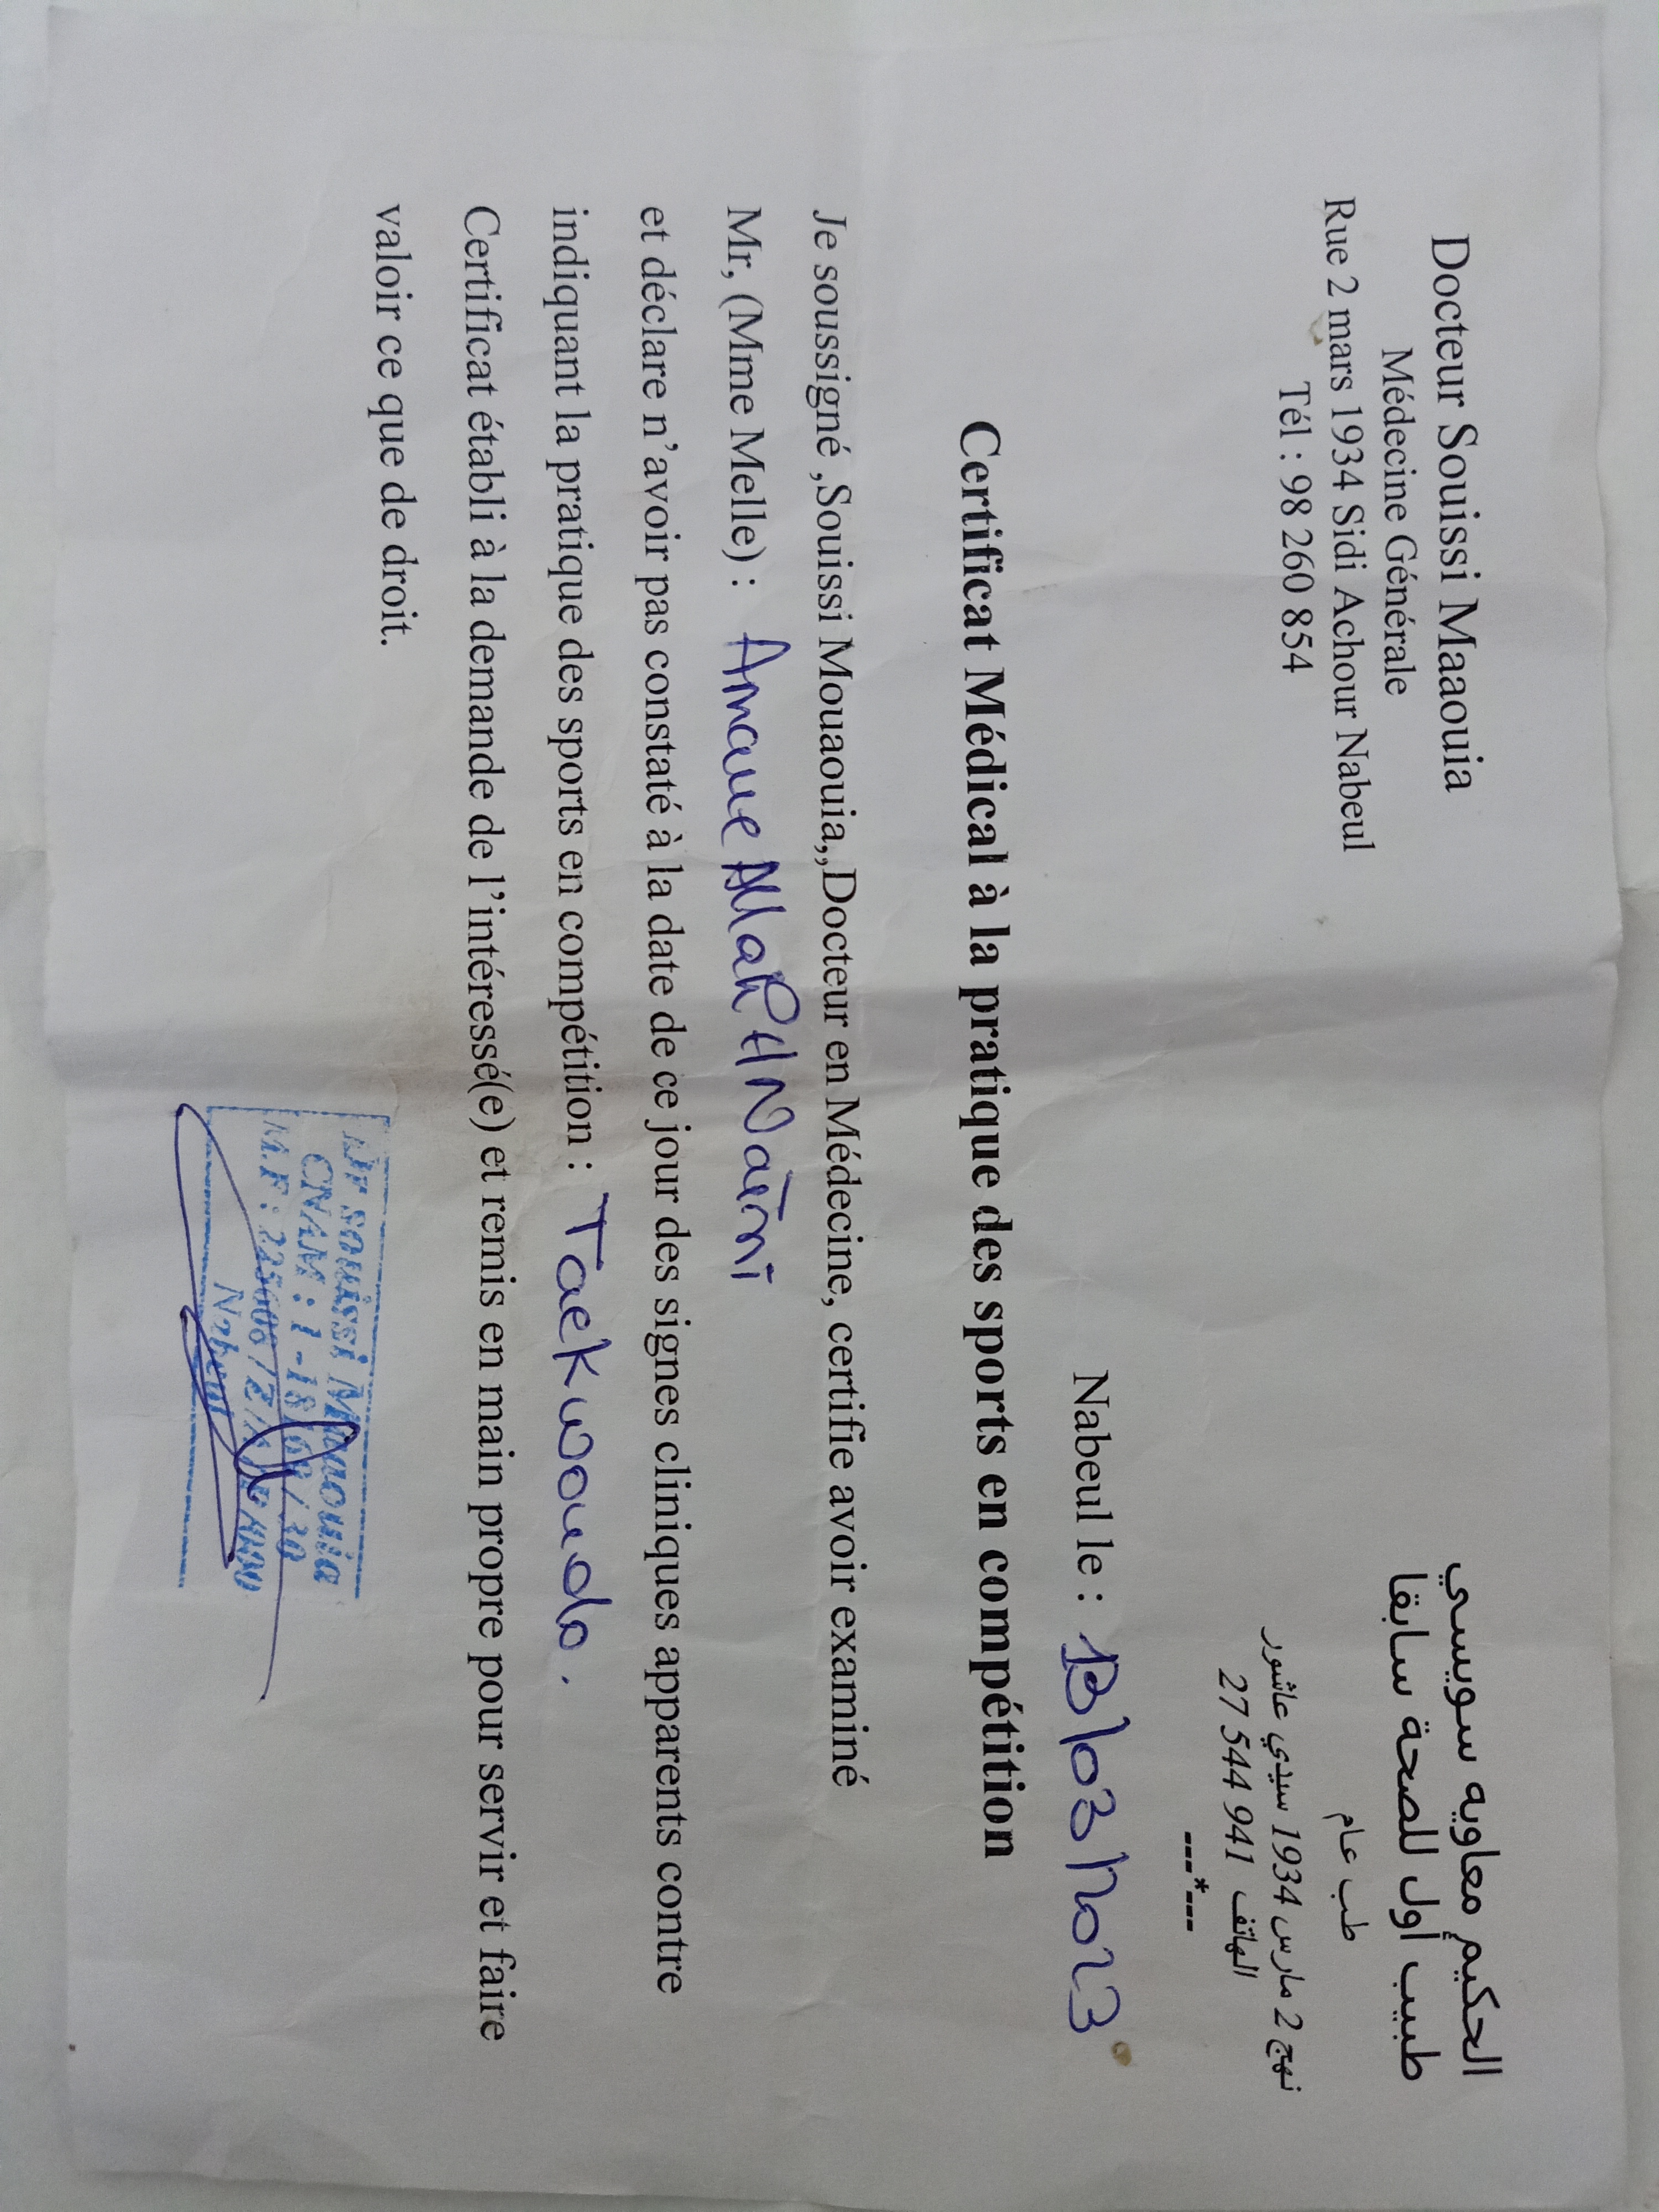 Docteur Souissi Maaouia
Médecine Générale
Rue 2 mars 1934 Sidi Achour Nabeul
Tél : 98 260 854
الحكيم معاويه سويسي
طبيب أول للصحة سابقا
طب عام
نهج 2 مارس 1934 سيدي عاشور
الهاتف 27 544 941
---*---
Nabeul le : /03/2023
Certificat Médical à la pratique des sports en compétition
Je soussigné ,Souissi Mouaouia,,Docteur en Médecine, certifie avoir examiné
Mr, (Mme Melle) : Allah
et déclare n'avoir pas constaté à la date de ce jour des signes cliniques apparents contre
indiquant la pratique des sports en compétition : Taekwoudo.
Certificat établi à la demande de l'intéressé(e) et remis en main propre pour servir et faire
valoir ce que de droit.
Dr souissi Maaouia
CNAM :
M.F :
Nabeul